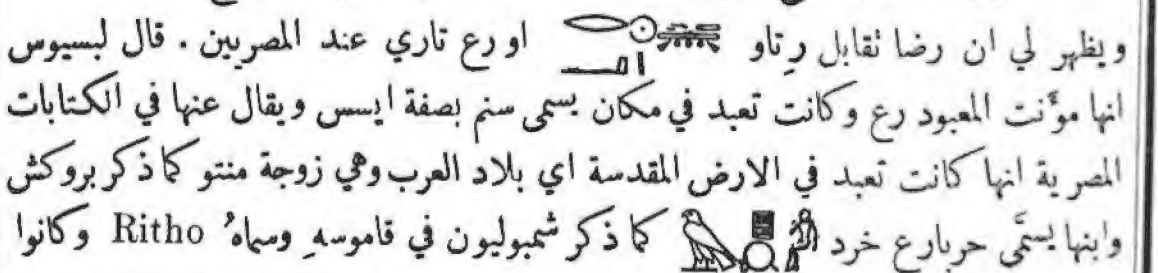 ويظهر لي ان رضا تقابل رِتاو او رع تاري عند المصريين . قال لبسيوس
انها موَّنت المعبود رع وكانت تعبد في مكان يسمى سنم بصفة ايسس ويقال عنها في الكتابات
المصرية انها كانت تعبد في الارض المقدسة اي بلاد العرب وهي زوجة منتو كما ذكر بروكش
وابنها يسمَّى حربارع خرد كما ذكر شمبوليون في قاموسهِ وسماهُ Ritho وكانوا